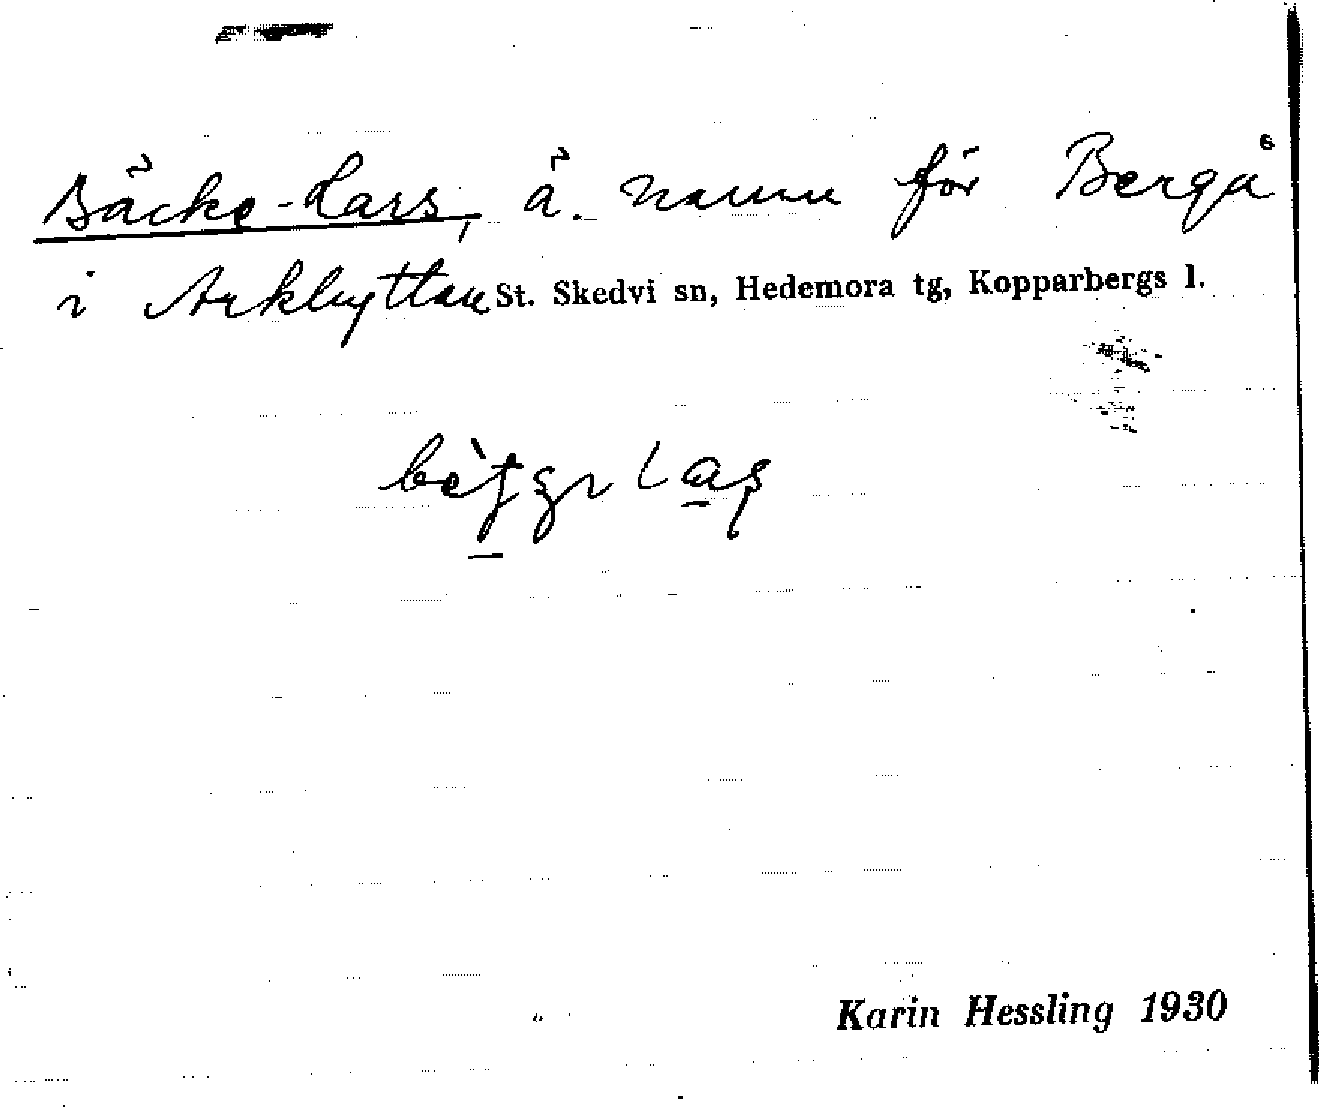 Bäcke-Lars, ä. namn för Bergå
i Arkhyttan St. Skedvi sn, Hedemora tg, Kopparbergs l.
Karin Hessling 1930